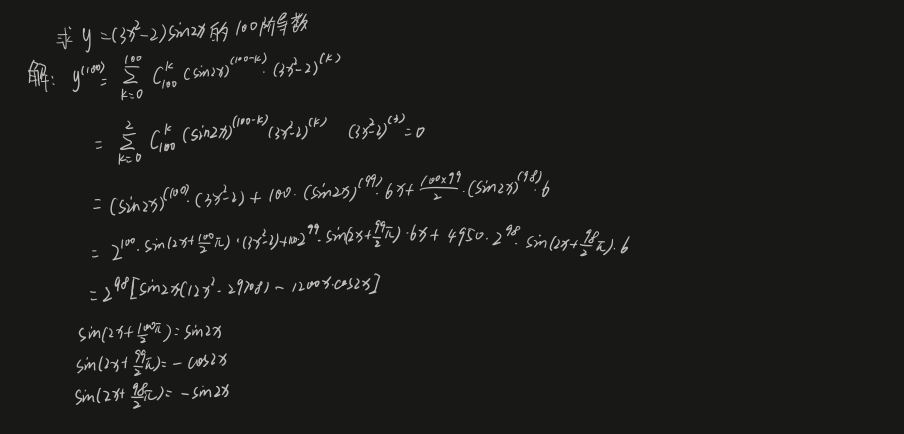 求 y=(3x²-2)sin2x 的 100阶导数
解: y^(100) = ∑_{k=0}^{100} C_{100}^k (sin2x)^(100-k) · (3x²-2)^(k)
= ∑_{k=0}^{2} C_{100}^k (sin2x)^(100-k) (3x²-2)^(k)   (3x²-2)^(3)=0
= (sin2x)^(100) · (3x²-2) + 100 · (sin2x)^(99) · 6x + \frac{100×99}{2} · (sin2x)^(98) · 6
= 2^100 · sin(2x+\frac{100}{2}π) · (3x²-2) + 100 2^99 · sin(2x+\frac{99}{2}π) · 6x + 4950 · 2^98 · sin(2x+\frac{98}{2}π) · 6
= 2^98 [sin2x(12x²-29708) - 1200x·cos2x]
sin(2x+\frac{100π}{2}) = sin2x
sin(2x+\frac{99}{2}π) = -cos2x
sin(2x+\frac{98}{2}π) = -sin2x